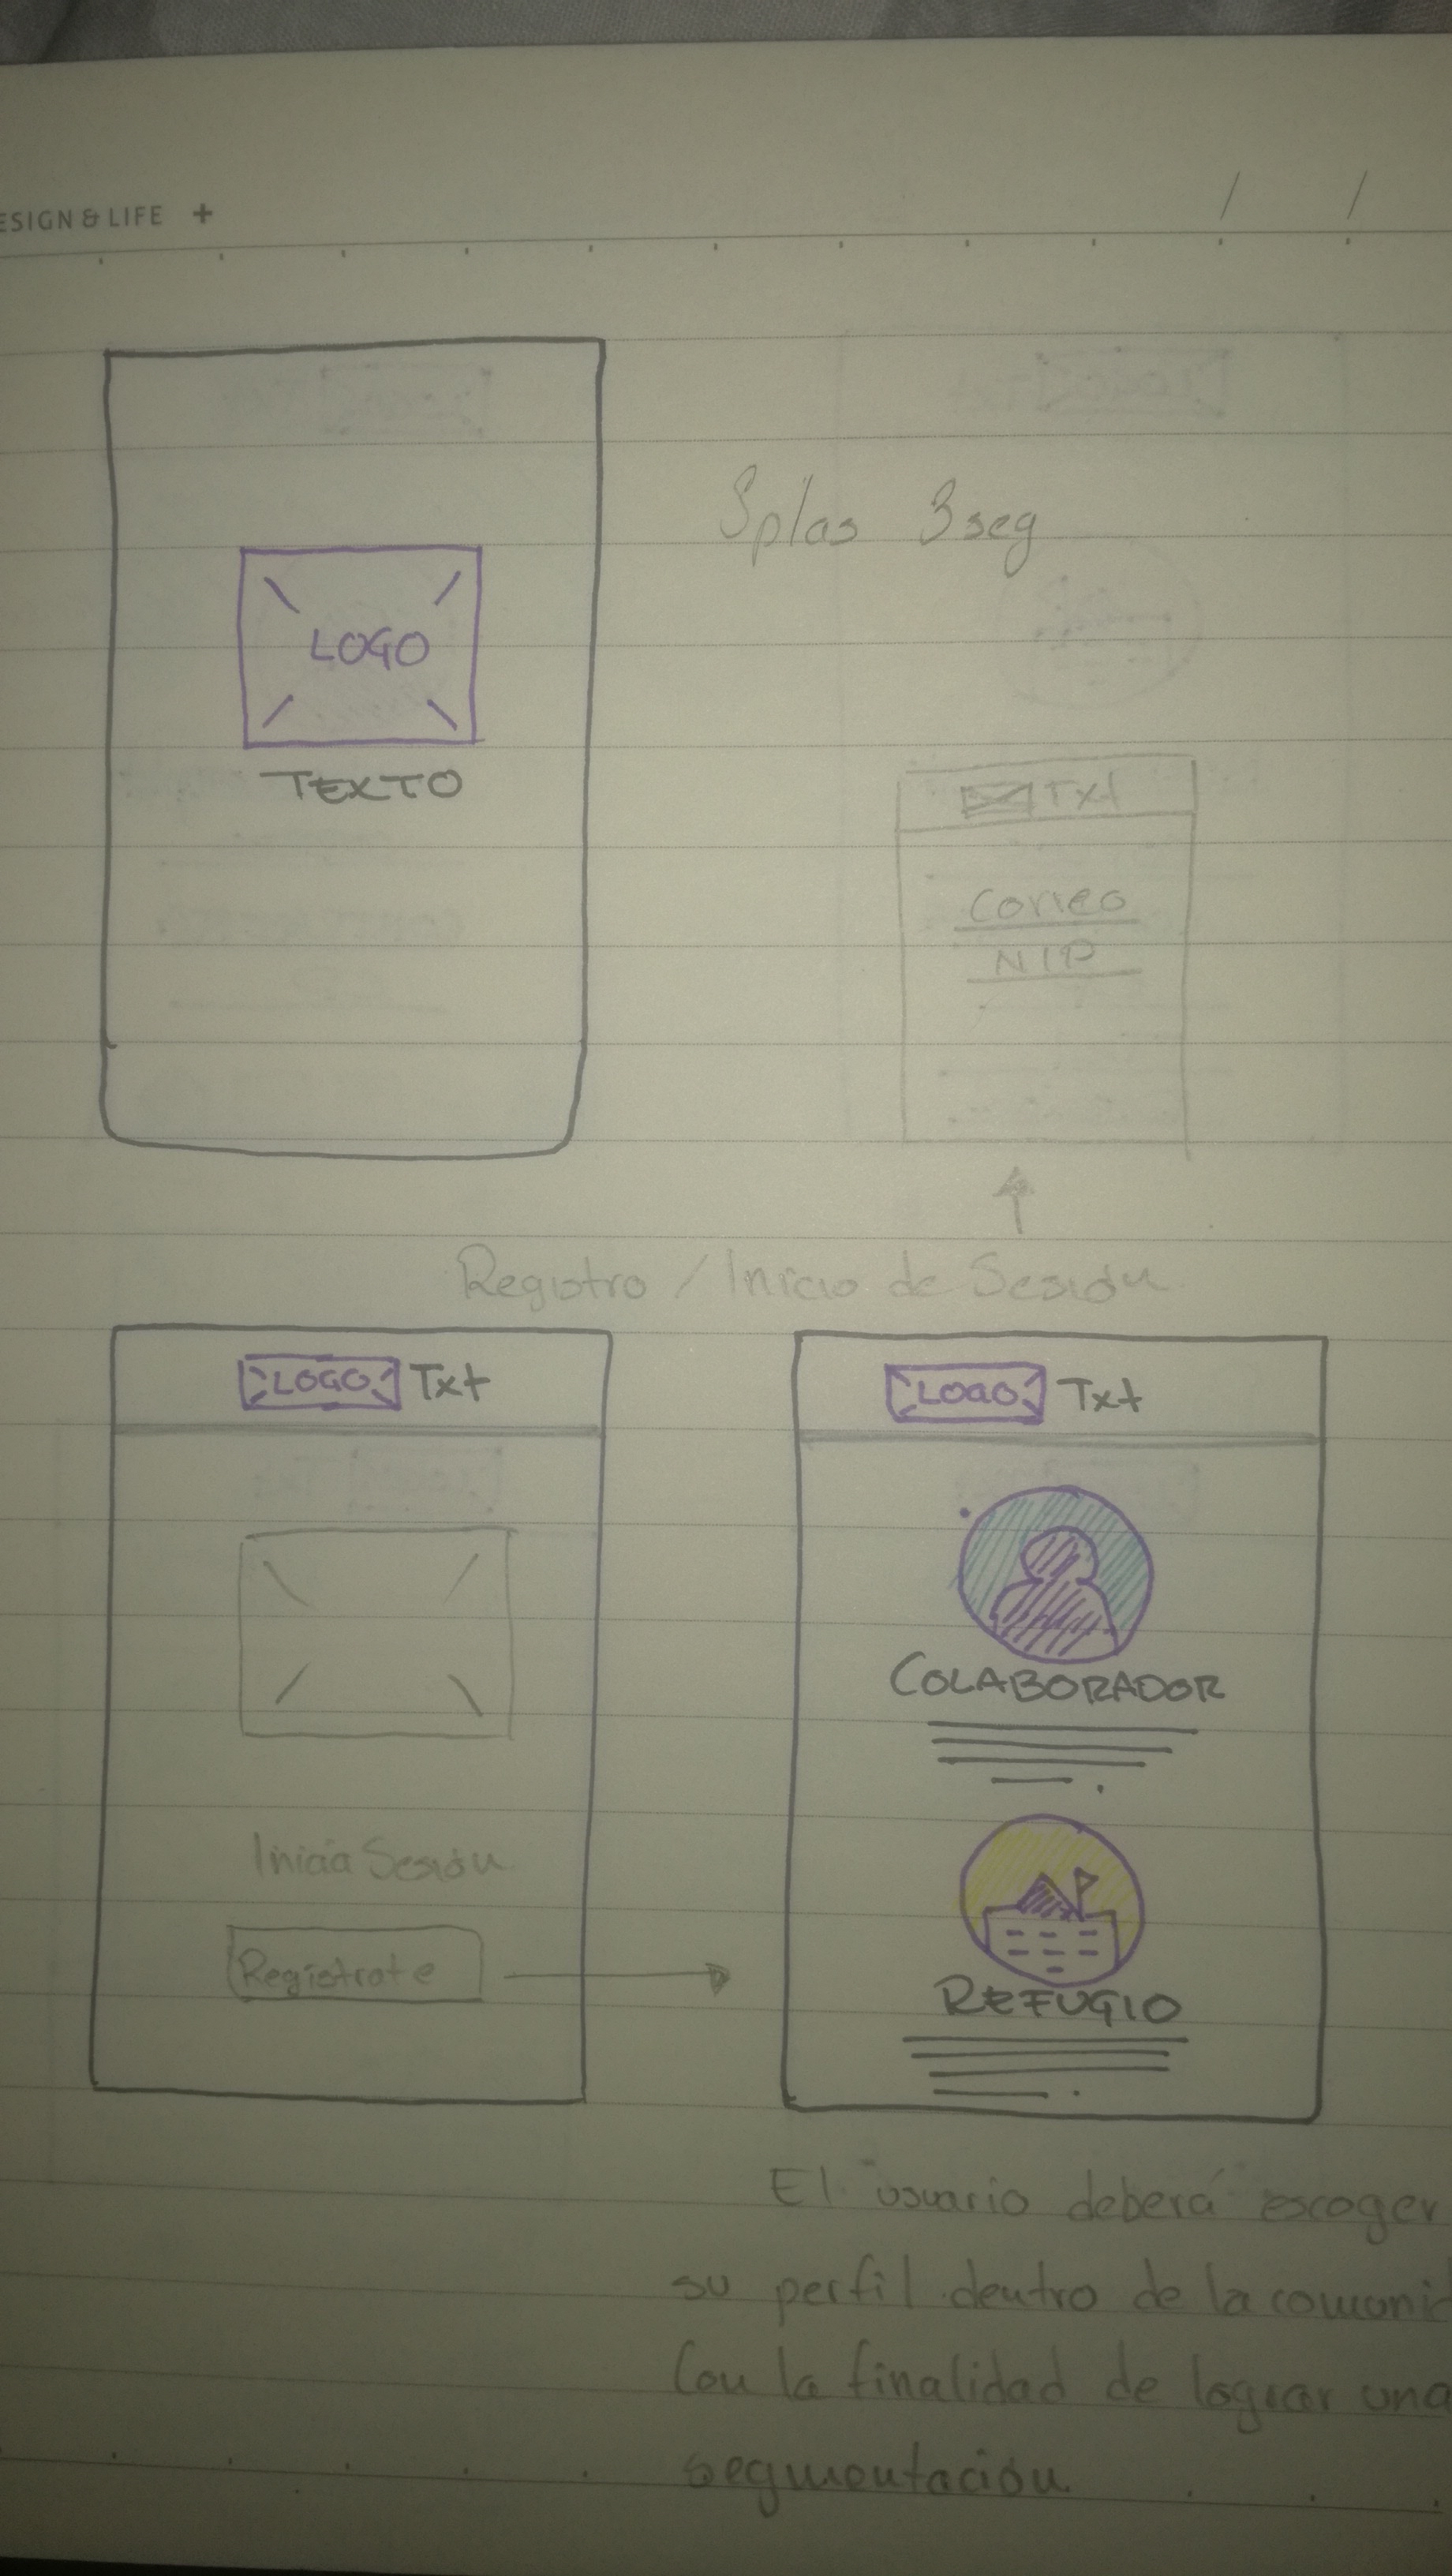 ESIGN & LIFE +
/ /
Splas 3seg
LOGO
TEXTO
Txt
Correo
NIP
Registro / Inicio de Sesión
LOGO Txt
Inicia Sesión
Registrate
LOGO Txt
COLABORADOR
REFUGIO
El usuario deberá escoger
su perfil dentro de la comunid
Con la finalidad de lograr una
segmentación.